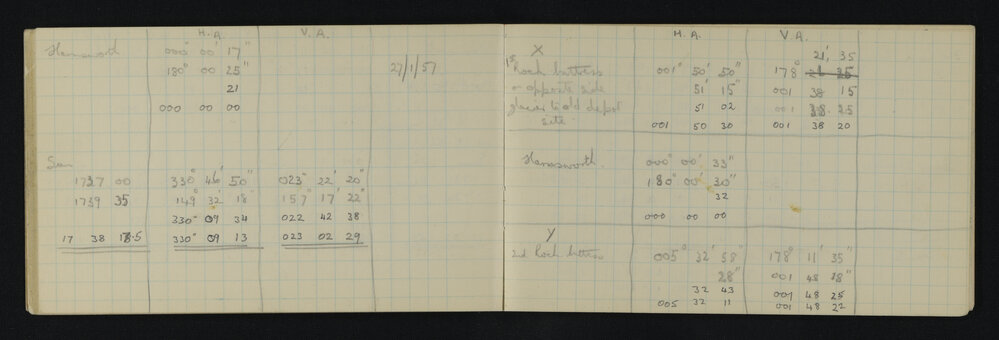 H.A. V.A.
Harmsworth 000° 00' 17"
180° 00 25"
21
000 00 00
27/1/57
Sun
1737 00 330° 46' 50" 023° 22' 20"
1739 35 149° 32' 18" 157° 17' 22"
330° 09 34 022 42 38
17 38 18.5 330° 09 13 023 02 29
H.A. V.A.
X 21' 35
1st Rock buttress 001° 50' 50" 178°
on opposite side 51' 15" 001 38 15
glacier to old depot 51 02 001 38 25
site 001 50 30 001 38 20
Harmsworth 000° 00' 33"
180° 00' 30"
32
000 00 00
Y
2nd Rock buttress 005° 32' 58" 178° 11' 35"
28" 001 48 28"
32 43 001 48 25
005 32 11 001 48 22